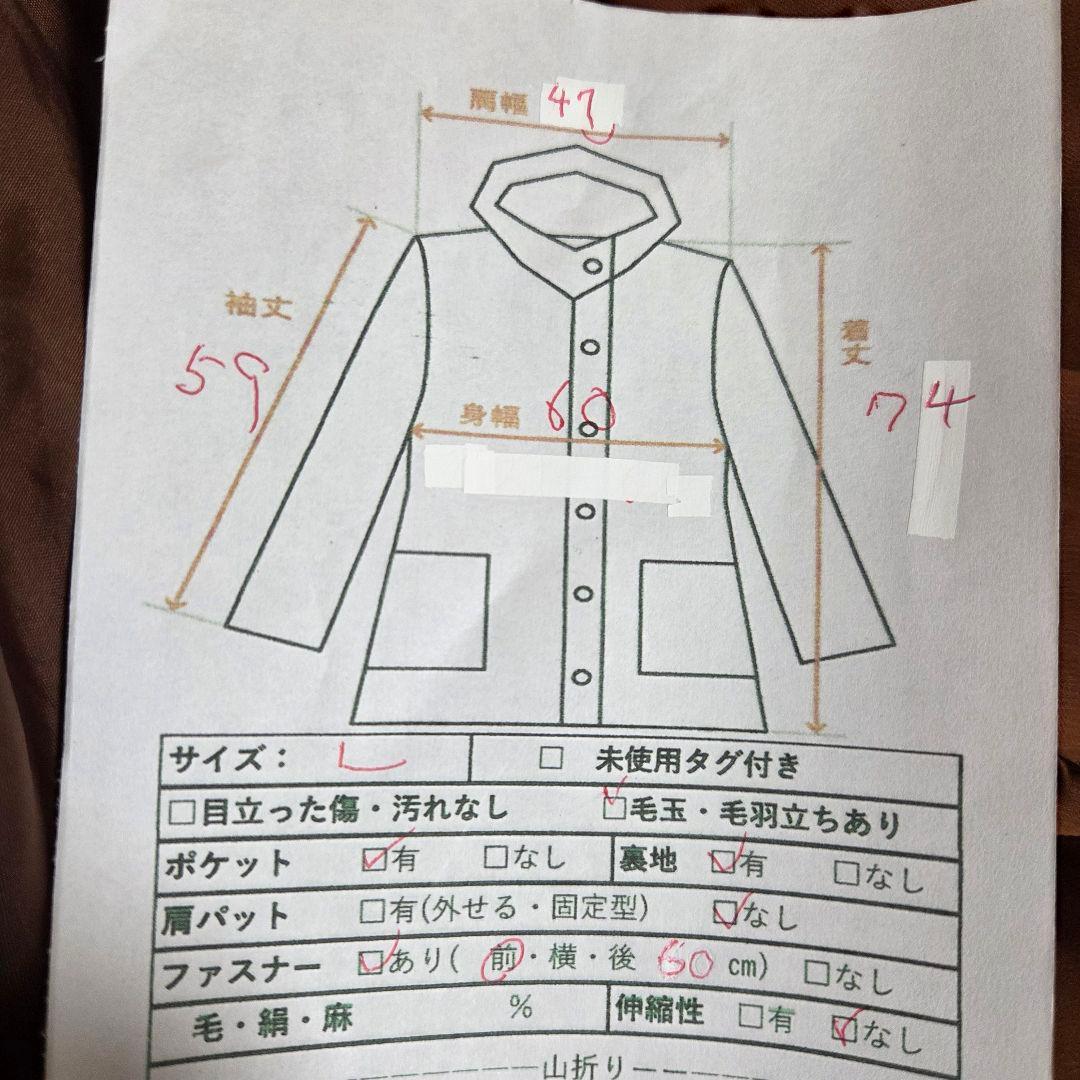 肩幅 47
袖丈
59
着丈
74
身幅 60
サイズ： L □ 未使用タグ付き
□目立った傷・汚れなし ☑毛玉・毛羽立ちあり
ポケット ☑有 □なし 裏地 ☑有 □なし
肩パット □有(外せる・固定型) ☑なし
ファスナー ☑あり( 前・横・後 60 cm) □なし
毛・絹・麻 % 伸縮性 □有 ☑なし
山折り